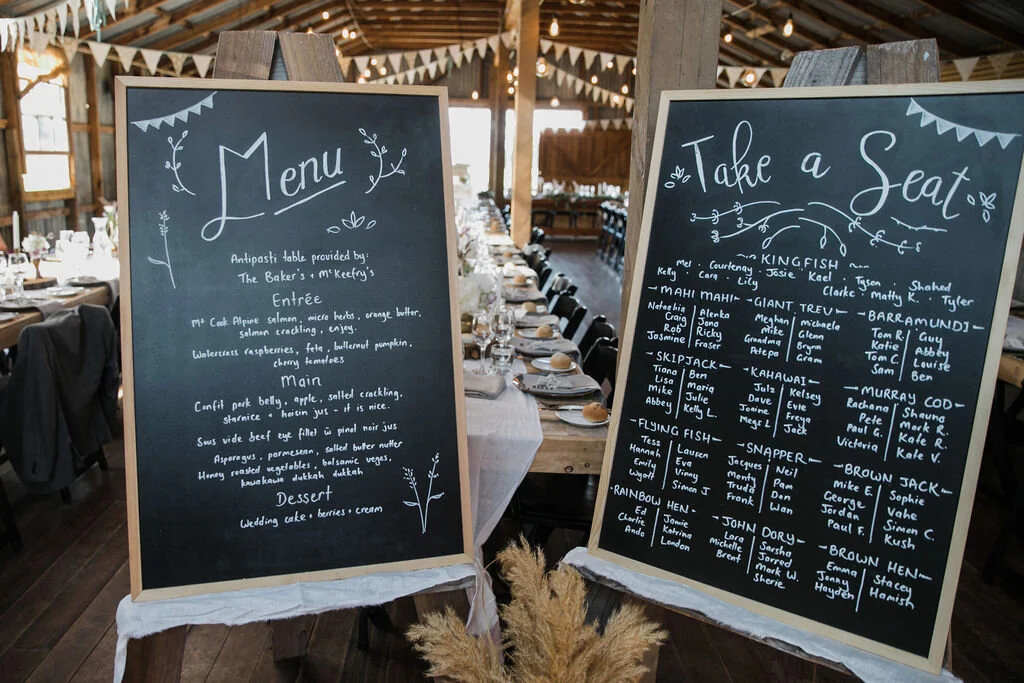 Menu
Antipasti table provided by:
The Baker's + McKeefry's
Entrée
Mt Cook Alpine salmon, micro herbs, orange butter,
salmon crackling, enjoy.
Watercress raspberries, feta, butternut pumpkin,
cherry tomatoes
Main
Confit pork belly, apple, salted crackling,
starnice + hoisin jus - it is nice.
Sous vide beef eye fillet w pinot noir jus
Asparagus, parmesan, salted butter nutter
Honey roasted vegetables, balsamic veges,
kawakawa dukkah dukkah
Dessert
Wedding cake + berries + cream
Take a Seat
KINGFISH
Mel · Courtenay · Josie · Kael · Tyson · Shahed
Kelly · Cara · Lily
Clarke · Matty K. · Tyler
MAHI MAHI
Natashia Alenka
Craig Jono
Rob Ricky
Jasmine Fraser
GIANT TREV
Meghan michaela
Mike Glenn
Grandma Brynn
Patepa Gram
BARRAMUNDI
Tom R. Guy
Katie Abbey
Tom C. Louise
Sam Ben
SKIPJACK
Tiana Ben
Lisa Maria
Mike Julie
Abbey Kelly L.
KAHAWAI
Julz Kelsey
Dave Evie
Janine Freya
Megs L Jack
MURRAY COD
Rachana Shaung
Pete Mark R.
Paul G. Kate R.
Victoria Kate V.
FLYING FISH
Tess Lauren
Hannah Eva
Emily Vinny
Wyatt Simon J
SNAPPER
Jacques Neil
Monty Pam
Trudd Dan
Frank Wan
BROWN JACK
Mike E. Sophie
George Vahe
Jordan Simon C.
Paul F. Kush
RAINBOW HEN
Ed Jamie
Charlie Katrina
Ando London
JOHN DORY
Lara Sasha
Michelle Jarred
Brent Mark W.
Sherie
BROWN HEN
Emma Stacey
Jonny Hamish
Hayden